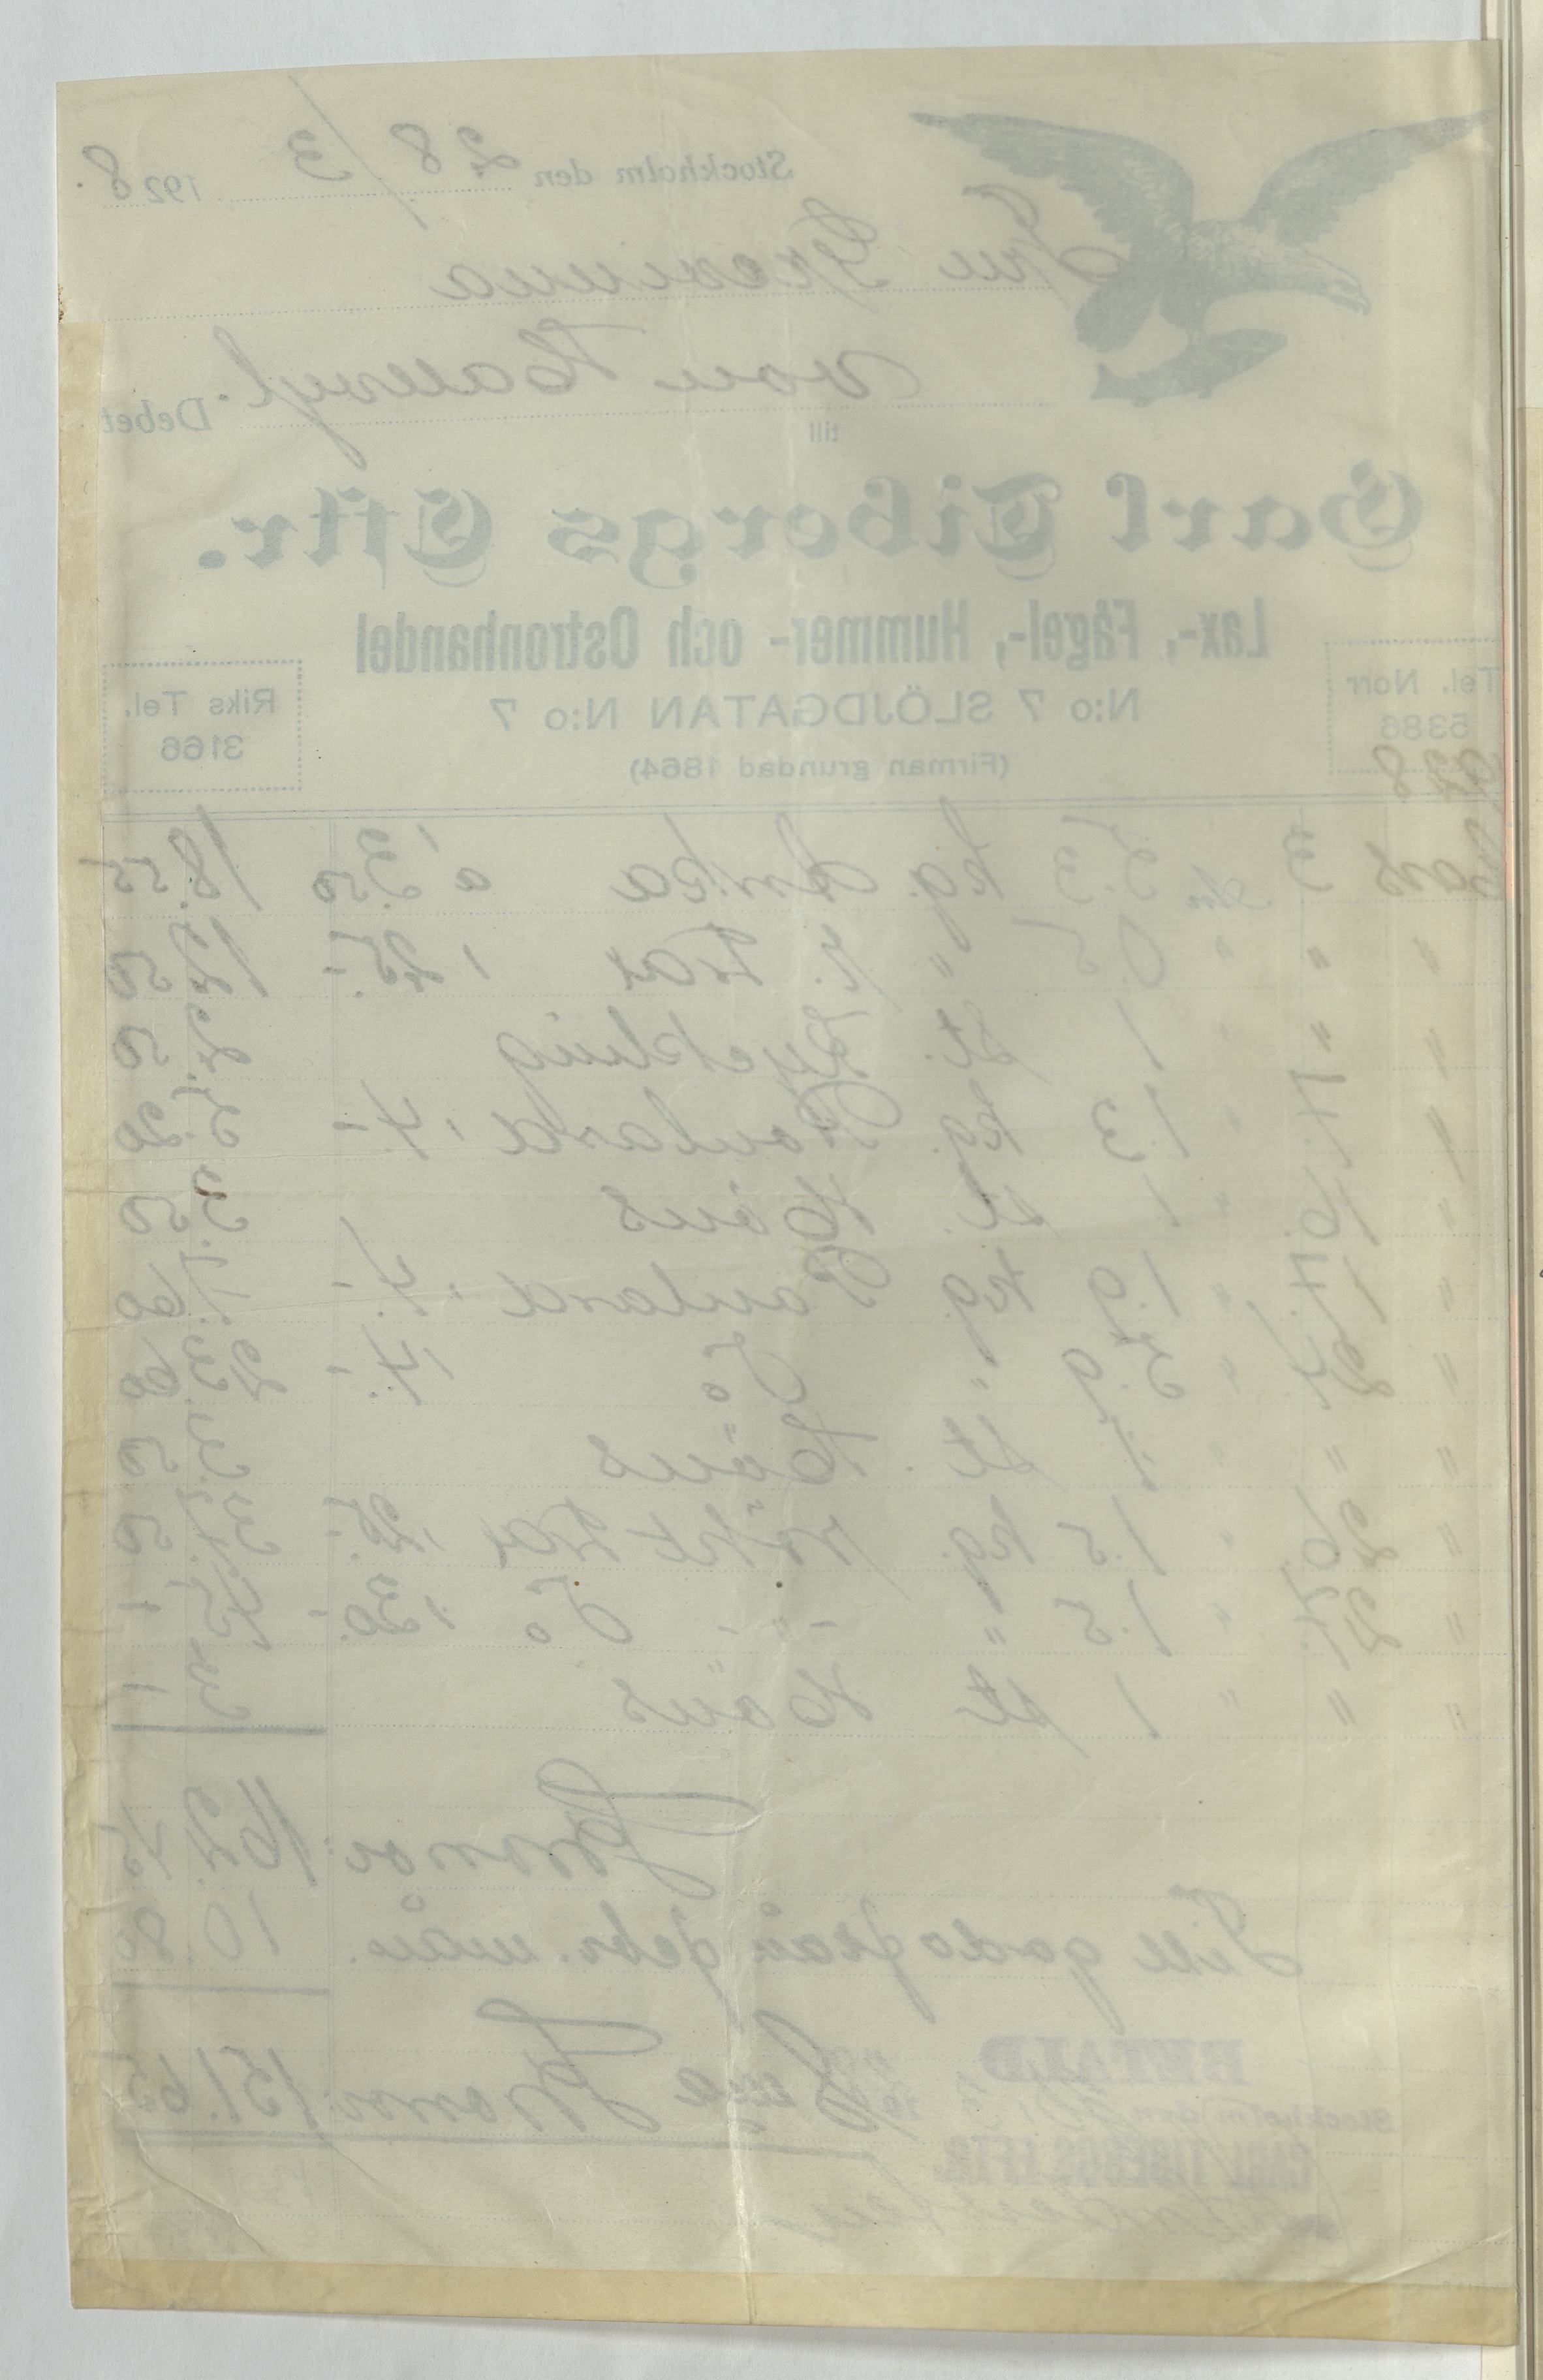 Stockholm den 28/3 1928.
Fru Grevinna
von Hallwyl.
till Debet
Carl Tibergs Eftr.
Lax-, Fågel-, Hummer- och Ostronhandel
Tel. Norr 5386
N:o 7 SLÖJDGATAN N:o 7
Riks Tel. 3166
(Firman grundad 1864)
1928
Mars 3 5.3 kg. Anka à 3.50 18.55
" " " 0.5 " r. Lax 25.- 12.50
" " " 1 st. Kyckling 2.50
" 7. " 1.3 kg. Poulard 4.- 5.20
" 16. " 1 st. Höns 3.50
" 17. " 1.9 kg. Poulard 4.- 7.60
" 24. " 5.9 " Do 4.- 23.60
" " " 1 st. Höns 3.50
" 26. " 1.5 kg. rökt Lax 25.- 37.50
" 27. " 1.5 " " Do 30.- 45.-
" " " 1 st Höns 3.-
Kronor 162.45
Till godo från febr. mån. 10.80
Säge Kronor 151.65
BETALD
Stockholm den
CARL TIBERGS EFTR.